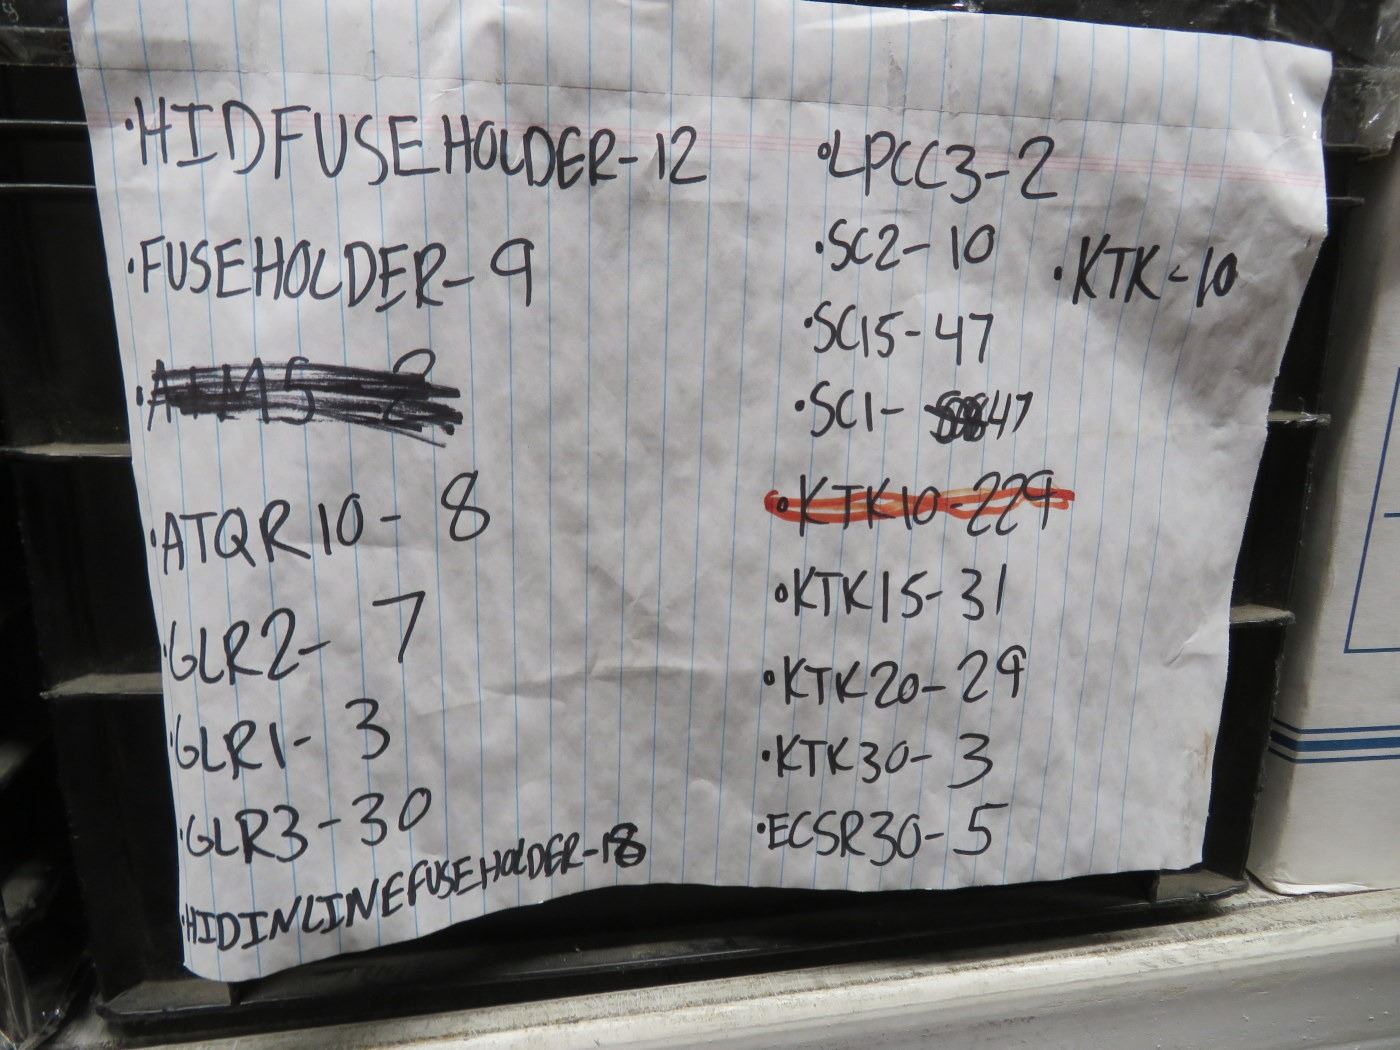 •HIDFUSEHOLDER-12
•FUSEHOLDER-9
•ATQR10-8
•GLR2-7
•GLR1-3
•GLR3-30
•HIDINLINEFUSEHOLDER-18
•LPCC3-2
•SC2-10
•KTK-10
•SC15-47
•SC1-47
•KTK10-229
•KTK15-31
•KTK20-29
•KTK30-3
•ECSR30-5